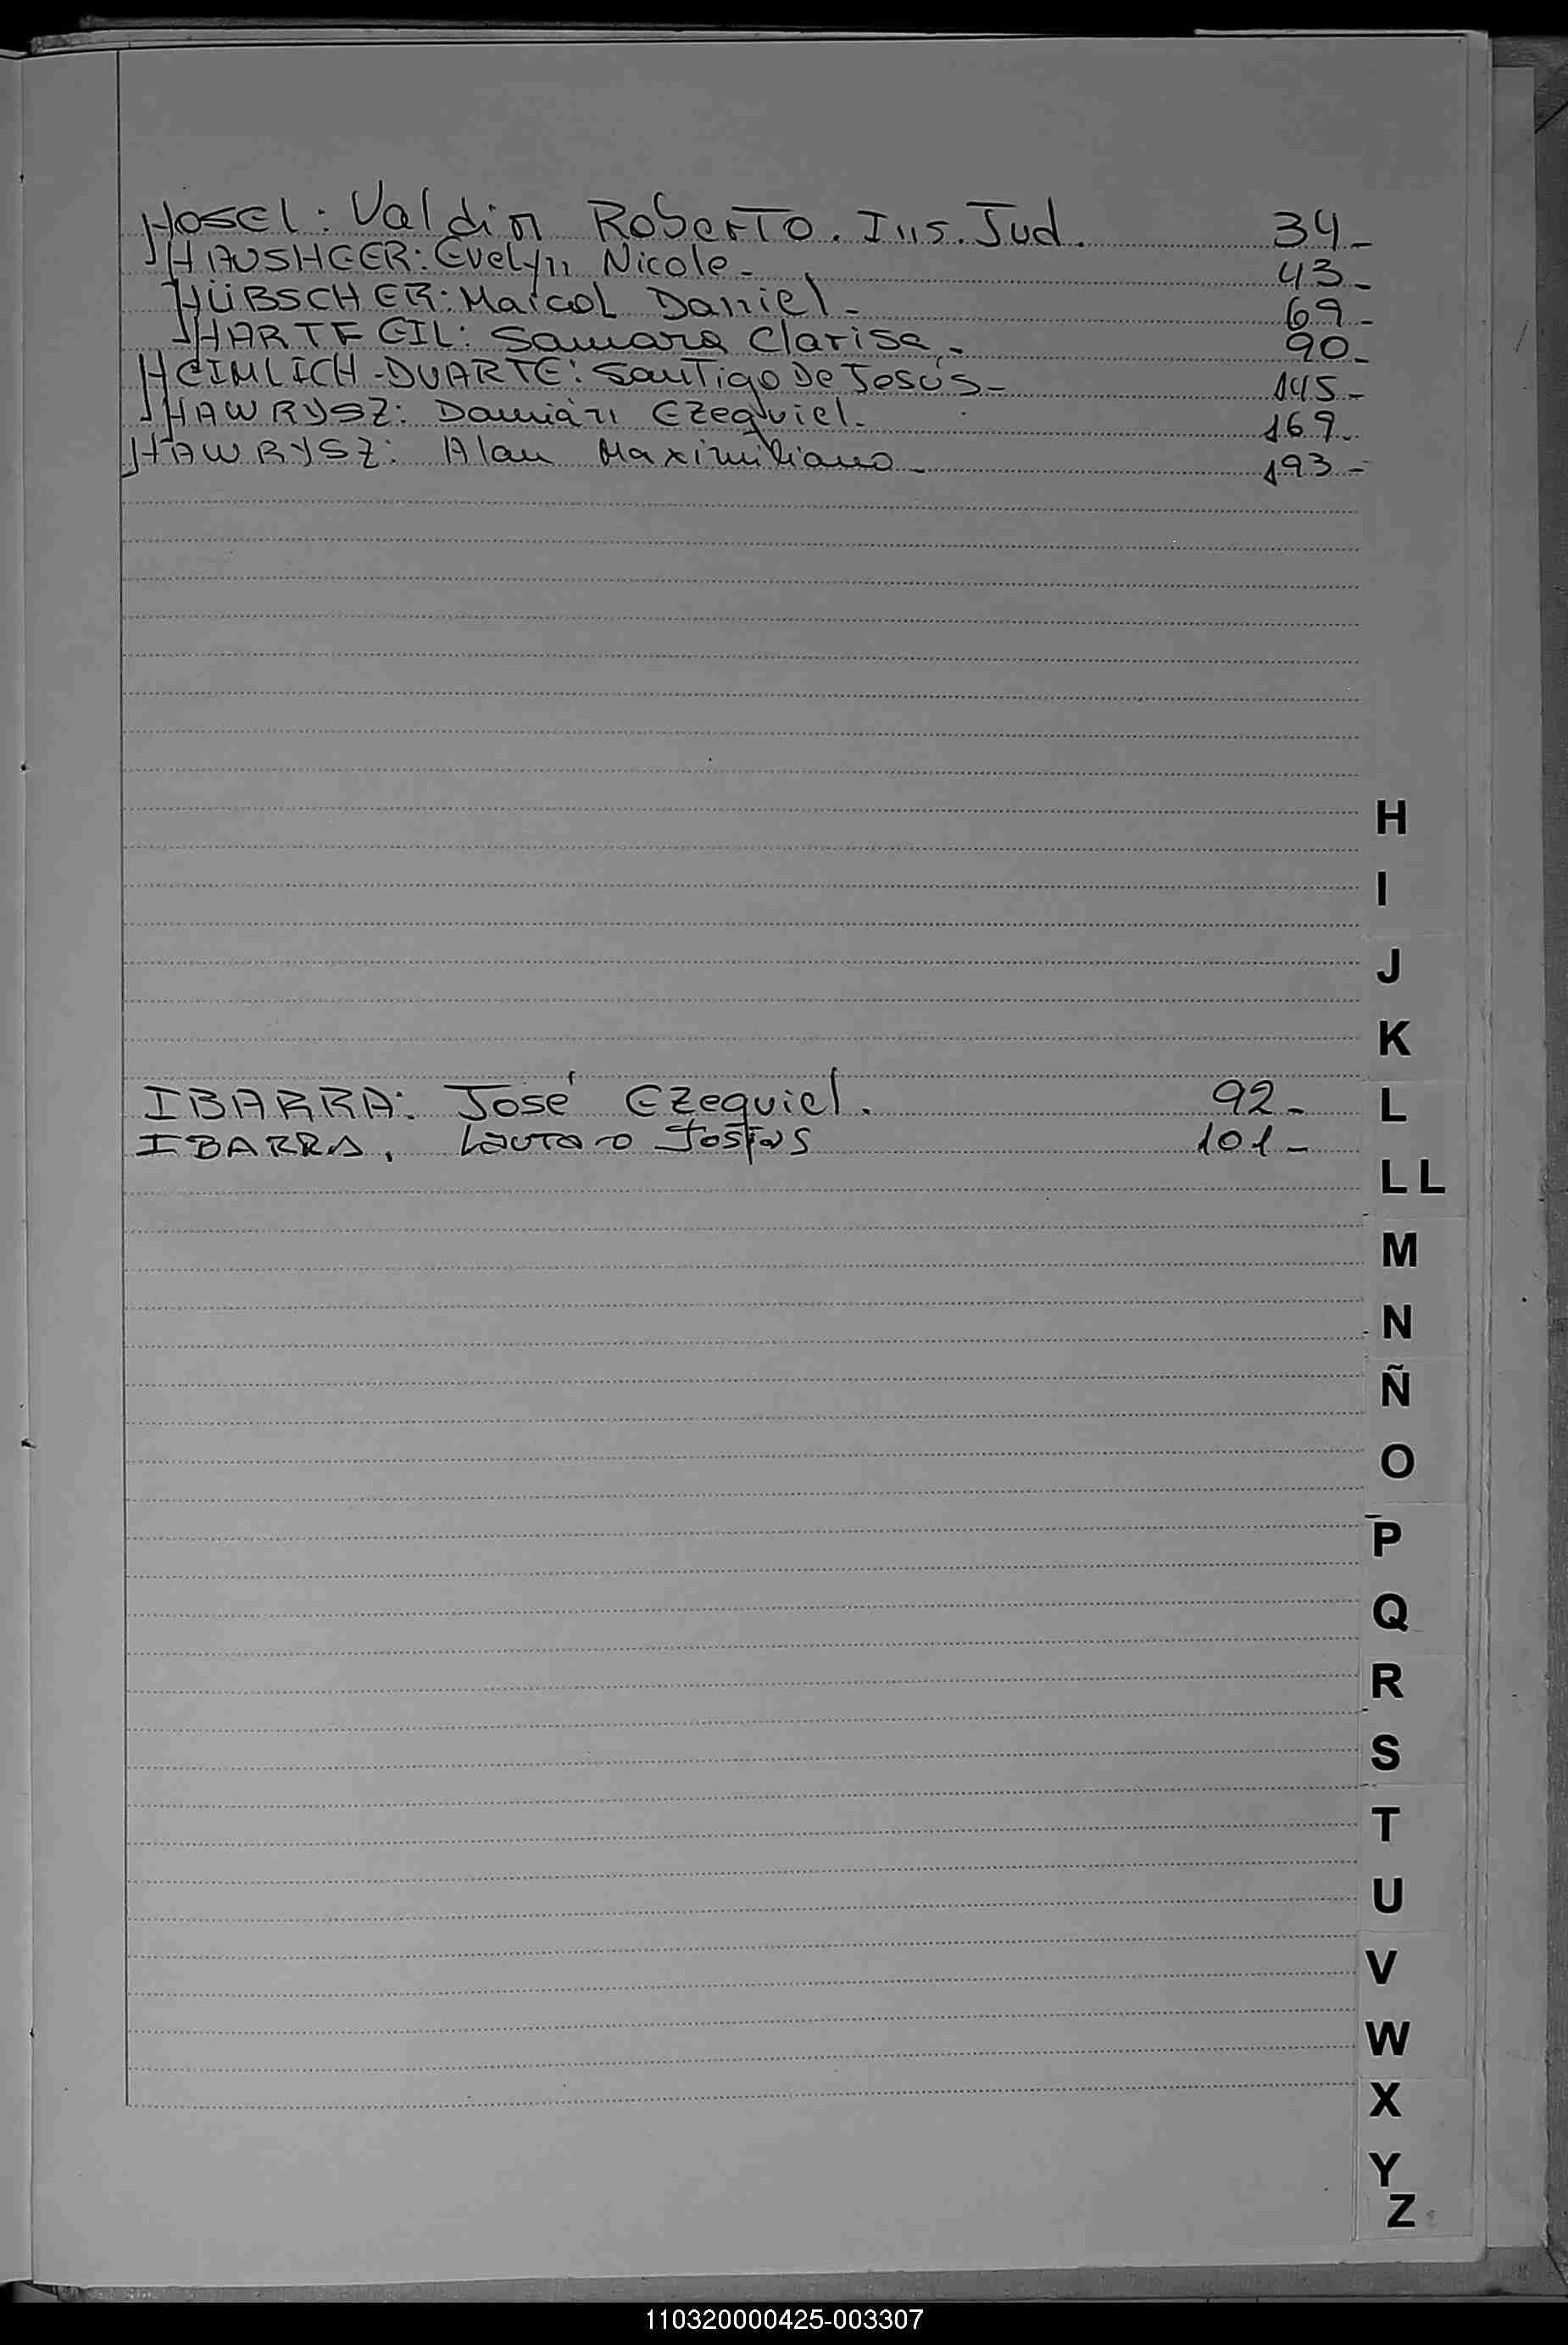 HOSEL: Valdin Roberto. Ins. Jud. 34-
HAUSHEER: Evelyn Nicole- 43-
HÜBSCHER: Maicol Daniel- 69-
HARTE GIL: Samara Clarisa.- 90-
HEIMLICH-DUARTE: Santigo De Jesús- 145-
HAWRYSZ: Damián Ezequiel. 169-
HAWRYSZ: Alan Maximiliano- 193-
H
I
J
K
IBARRA: José Ezequiel. 92-
L
IBARRA, Lautaro Josías 101-
LL
M
N
Ñ
O
P
Q
R
S
T
U
V
W
X
Y
Z
110320000425-003307